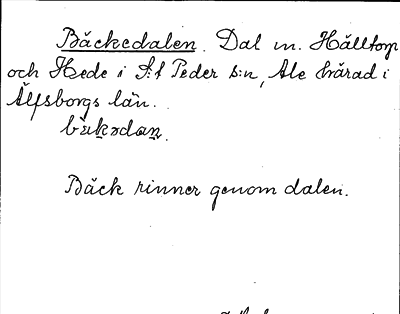 Bäckedalen. Dal m. Hålltorp
och Hede i S:t Peder s:n, Ale härad i
Älfsborgs län.
Bäck rinner genom dalen.